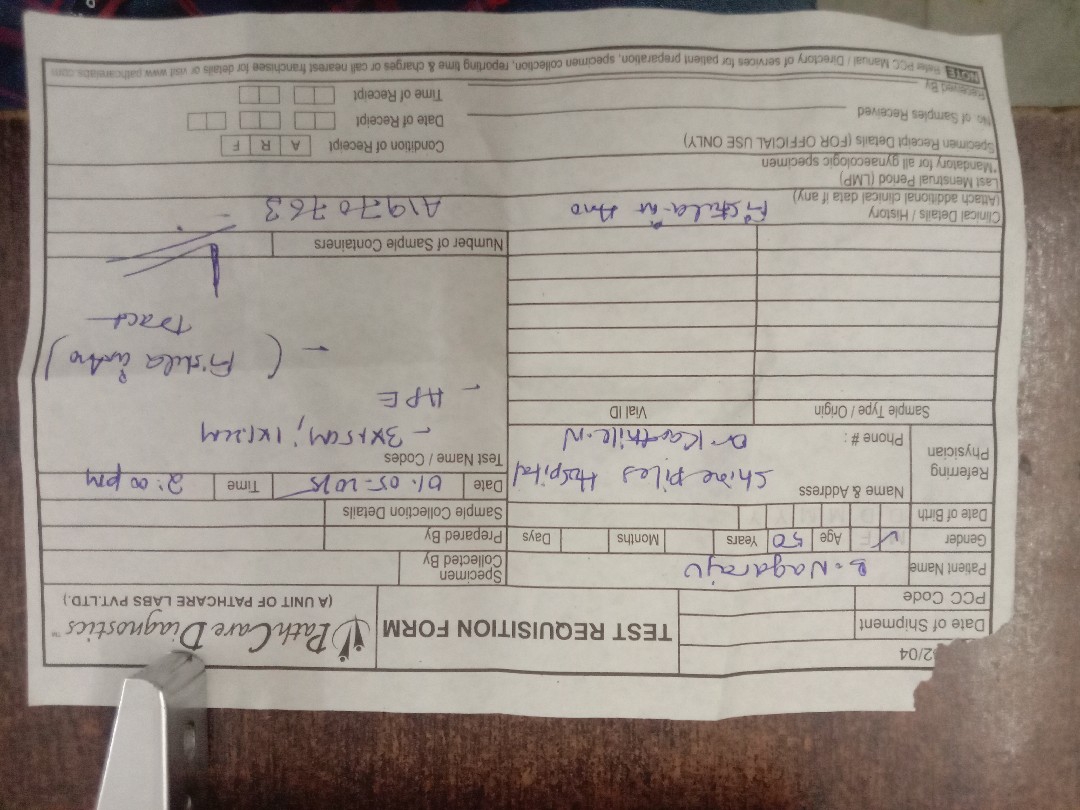 2/04
TEST REQUISITION FORM
PathCare Diagnostics™
(A UNIT OF PATHCARE LABS PVT.LTD.)
Date of Shipment
PCC Code
Patient Name B. Nagaraju
Specimen Collected By
Gender M F Age 50 Years Months Days
Prepared By
Date of Birth D D M M Y Y
Sample Collection Details
Referring Physician
Name & Address Shine Piles Hospital
Phone # : Dr Karthik.N
Date 01.05-2025 Time 2:00 pm
Test Name / Codes
- 3x1.5cm, 1x1.2cm
- HPE
- (Fistula in Ano)
Tract
Sample Type / Origin Vial ID
Number of Sample Containers
Clinical Details / History
(Attach additional clinical data if any)
Fistula in Ano
A1970763
Last Menstrual Period (LMP)
*Mandatory for all gynaecologic specimen
Specimen Receipt Details (FOR OFFICIAL USE ONLY)
Condition of Receipt A R F
No. of Samples Received
Date of Receipt
Received By
Time of Receipt
NOTE Refer PCC Manual / Directory of services for patient preparation, specimen collection, reporting time & charges or call nearest franchisee for details or visit www.pathcarelabs.com